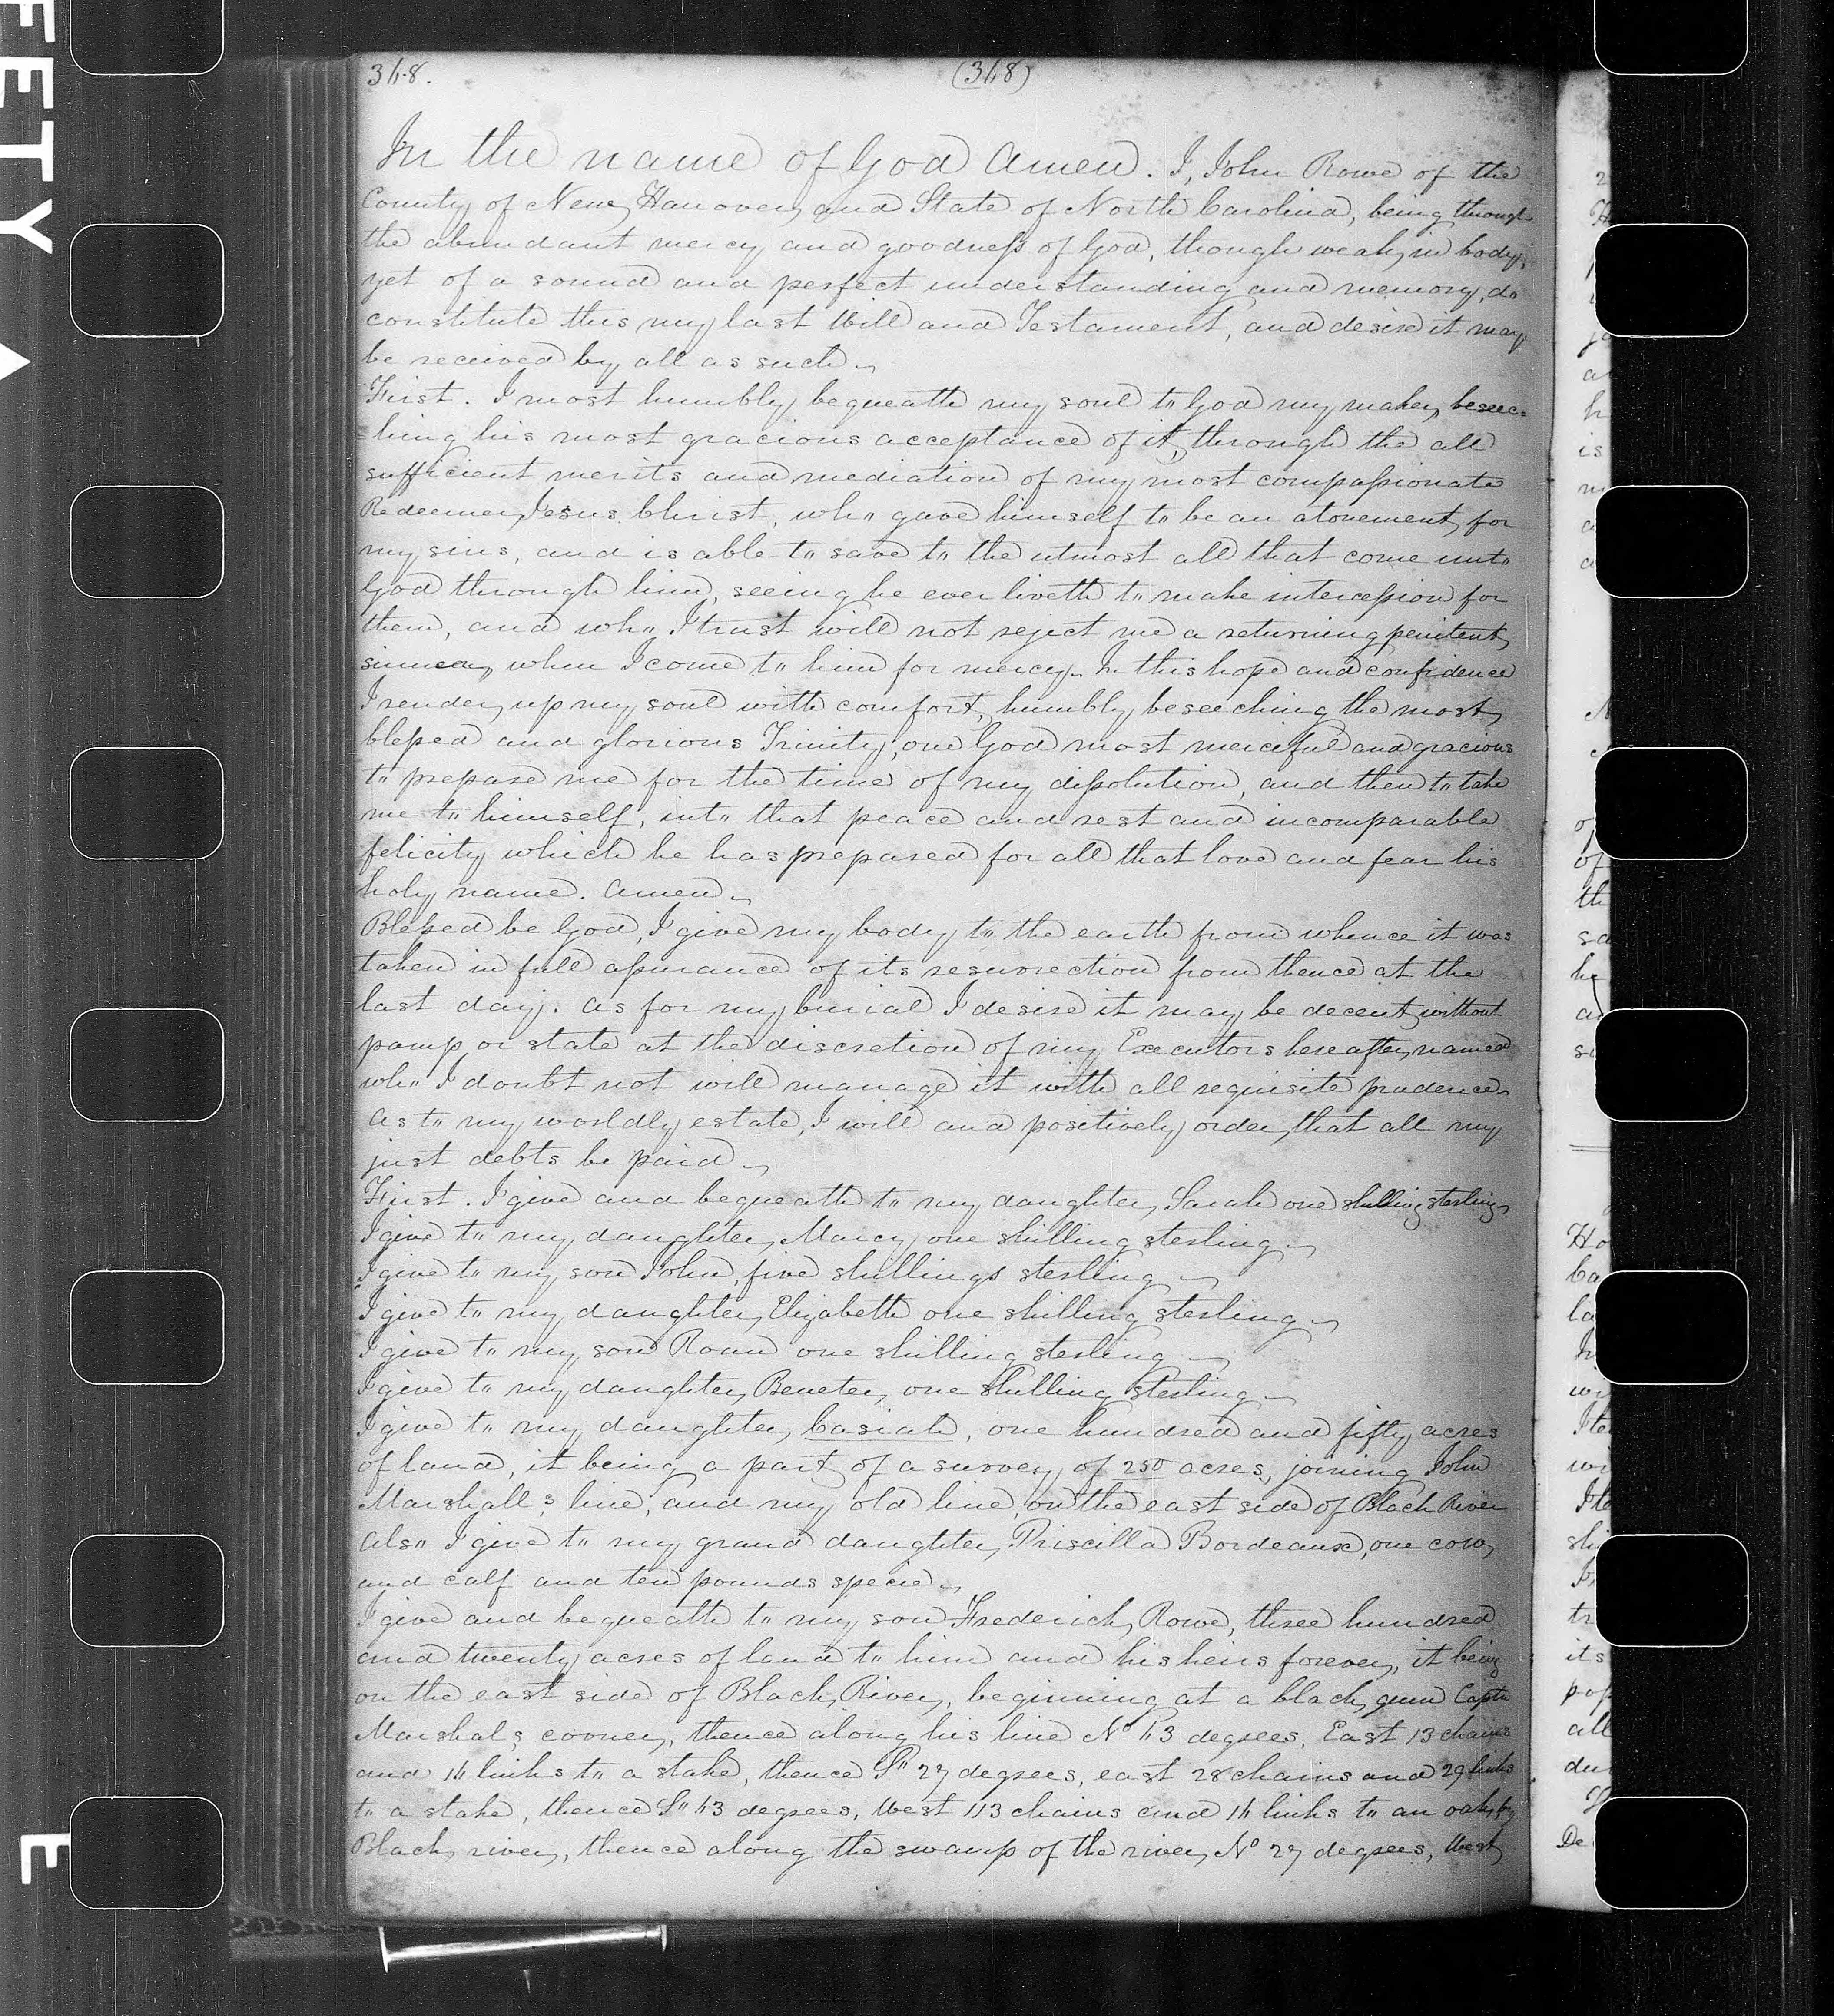 348. (348)
In the name of God Amen. I, John Rowe of the
County of New Hanover and State of North Carolina, being through
the abundant mercy and goodness of God, though weak in body,
yet of a sound and perfect understanding and memory, do
constitute this my last Will and Testament, and desire it may
be received by all as such
First. I most humbly bequeath my soul to God my maker, beseec=
=hing his most gracious acceptance of it, through the all
sufficient merits and mediation of my most compassionate
Redeemer, Jesus Christ, who gave himself to be an atonement for
my sins, and is able to save to the utmost all that come unto
God through him, seeing he ever liveth to make intercession for
them, and who I trust will not reject me a returning penitent
sinner, when I come to him for mercy. In this hope and confidence
I render up my soul with comfort, humbly beseeching the most
blessed and glorious Trinity, one God most merciful and gracious
to prepare me for the time of my dissolution, and then to take
me to himself, into that peace and rest and incomparable
felicity which he has prepared for all that love and fear his
holy name. Amen
Blessed be God, I give my body to the earth from whence it was
taken in full assurance of its resurrection from thence at the
last day. As for my burial I desire it may be decent, without
pomp or state at the discretion of my Executors hereafter named
who I doubt not will manage it with all requisite prudence
As to my worldly estate, I will and positively order, that all my
just debts be paid
First. I give and bequeath to my daughter, Sarah one shilling sterling
I give to my daughter, Marcy, one shilling sterling
I give to my son John, five shillings sterling
I give to my daughter, Elizabeth one shilling sterling
I give to my son Roan one shilling sterling
I give to my daughter, Beneter, one shilling sterling
I give to my daughter, Casiah, one hundred and fifty acres
of land, it being a part of a survey of 250 acres, joining John
Marshall's line, and my old line, on the east side of Black River
Also I give to my grand daughter, Priscilla Bordeaux, one cow
and calf and ten pounds specie
I give and bequeath to my son Frederick Rowe, three hundred
and twenty acres of land to him and his heirs forever, it being
on the east side of Black River, beginning at a black gum Capt
Marshal's corner, thence along his line No 43 degrees, East 13 chains
and 14 links to a stake, thence So 27 degrees, east 28 chains and 29 links
to a stake, thence So 43 degrees, West 113 chains and 14 links to an oak by
Black river, thence along the swamp of the river, No 27 degrees, West